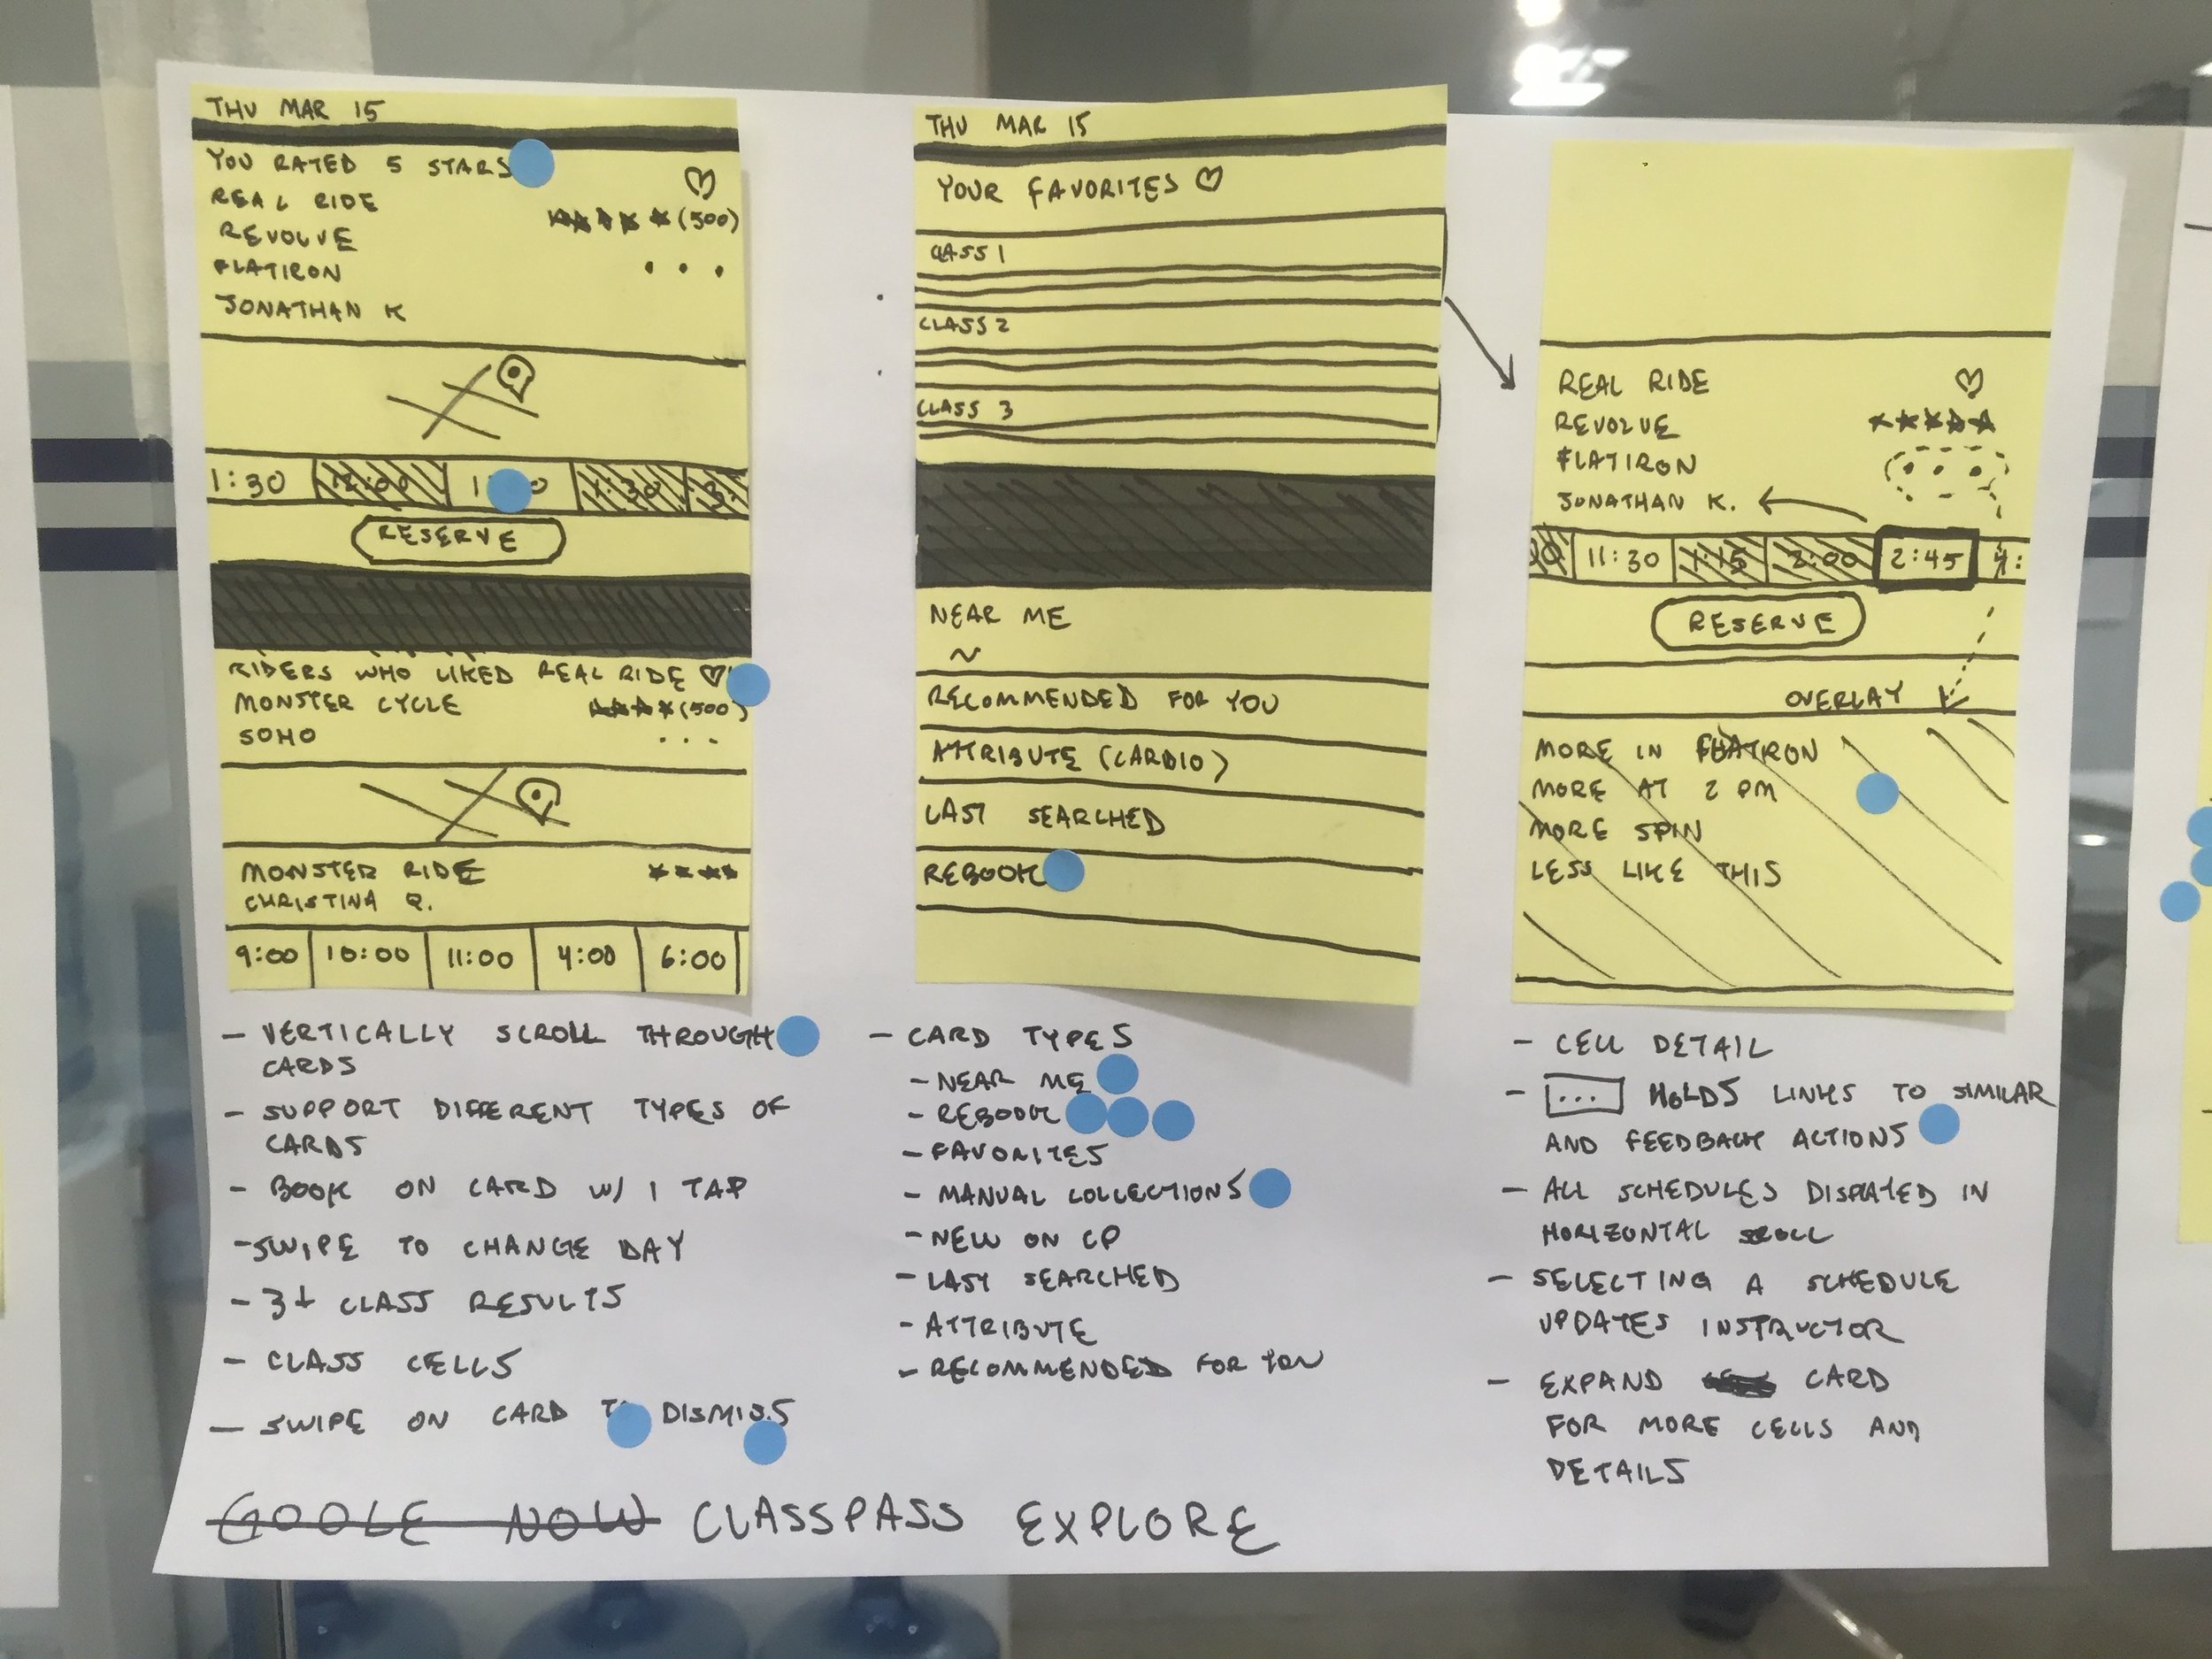 THU MAR 15
YOU RATED 5 STARS
REAL RIDE
REVOLVE
(500)
FLATIRON
JONATHAN K
1:30
RESERVE
RIDERS WHO LIKED REAL RIDE
MONSTER CYCLE (500)
SOHO
MONSTER RIDE
CHRISTINA Q.
9:00 10:00 11:00 4:00 6:00
- VERTICALLY SCROLL THROUGH
CARDS
- SUPPORT DIFFERENT TYPES OF
CARDS
- BOOK ON CARD W/ 1 TAP
- SWIPE TO CHANGE DAY
- 3+ CLASS RESULTS
- CLASS CELLS
- SWIPE ON CARD DISMISS
THU MAR 15
YOUR FAVORITES
CLASS 1
CLASS 2
CLASS 3
NEAR ME
RECOMMENDED FOR YOU
ATTRIBUTE (CARDIO)
LAST SEARCHED
REBOOK
- CARD TYPES
- NEAR ME
- REBOOK
- FAVORITES
- MANUAL COLLECTIONS
- NEW ON CP
- LAST SEARCHED
- ATTRIBUTE
- RECOMMENDED FOR YOU
REAL RIDE
REVOLVE
FLATIRON
JONATHAN K.
11:30 1:15 2:00 2:45
RESERVE
OVERLAY
MORE IN FLATIRON
MORE AT 2 PM
MORE SPIN
LESS LIKE THIS
- CELL DETAIL
- ... HOLDS LINKS TO SIMILAR
AND FEEDBACK ACTIONS
- ALL SCHEDULES DISPLAYED IN
HORIZONTAL SCROLL
- SELECTING A SCHEDULE
UPDATES INSTRUCTOR
- EXPAND CARD
FOR MORE CELLS AND
DETAILS
GOOLE NOW CLASSPASS EXPLORE